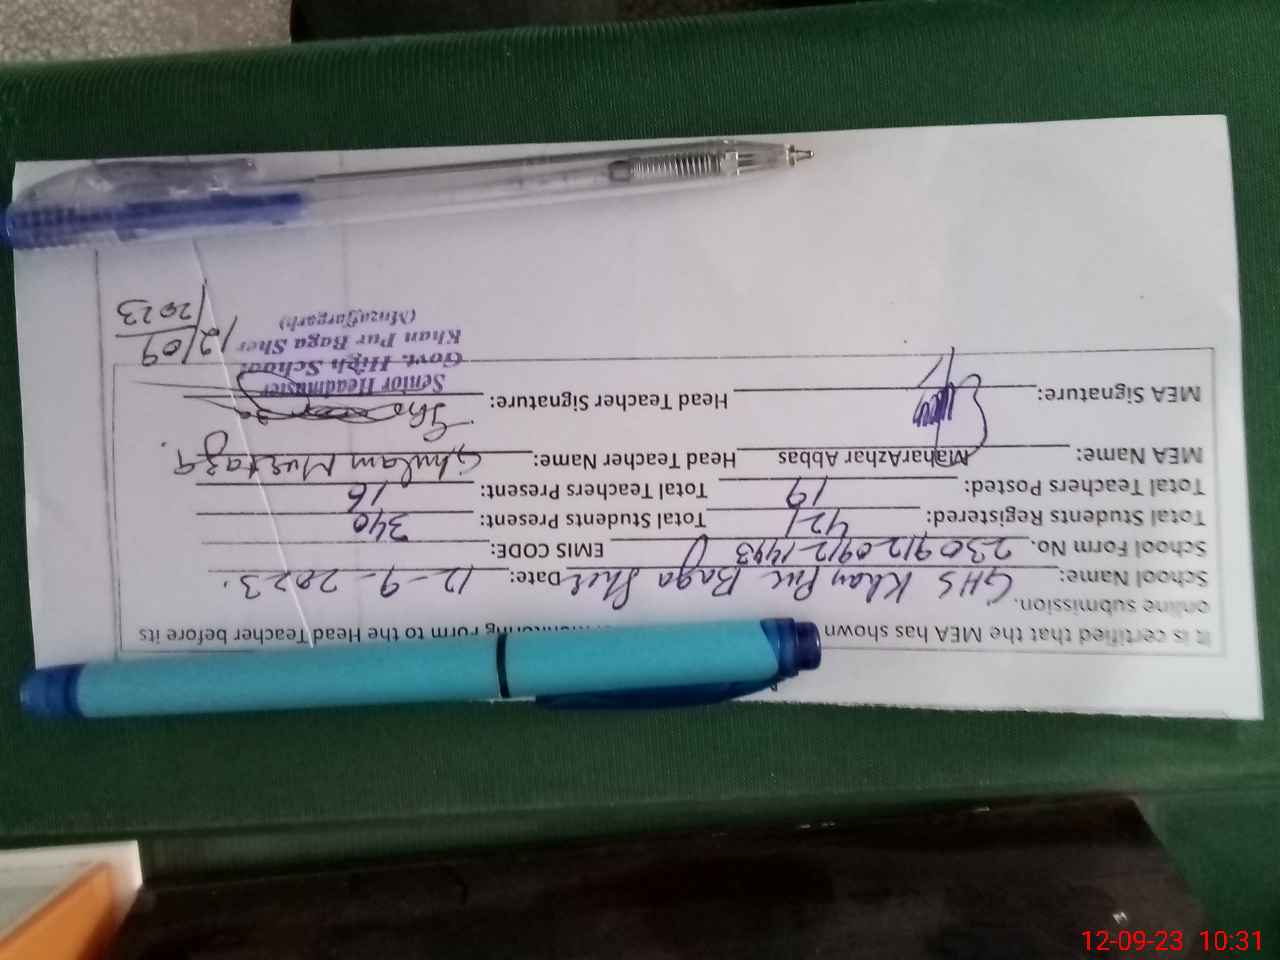 It is certified that the MEA has shown Monitoring Form to the Head Teacher before its
online submission.
School Name: GHS Khan Pur Baga Sher Date: 12-9-2023.
School Form No. 2309120912 1493 EMIS CODE:
Total Students Registered: 421 Total Students Present: 340
Total Teachers Posted: 19 Total Teachers Present: 16
MEA Name: MaharAzhar Abbas Head Teacher Name: Ghulam Murtaza
MEA Signature: Head Teacher Signature:
Senior Headmaster
Govt. High School
Khan Pur Baga Sher
(Muzaffargarh)
12/09
/2023
12-09-23 10:31